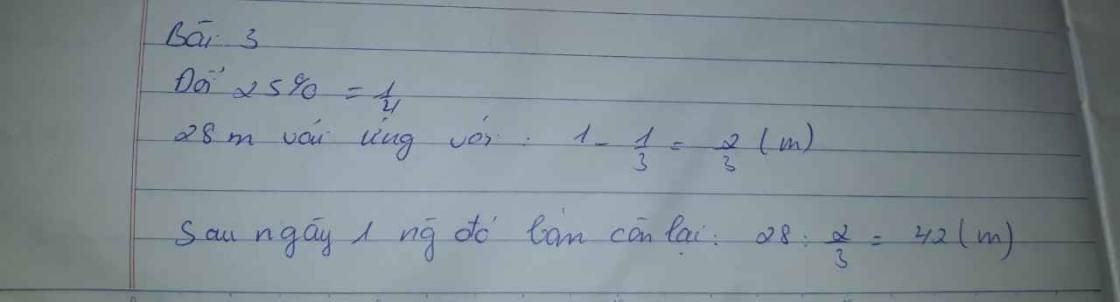 Bài 3
Đổi 25% = 1/4
28 m vải ứng với : 1 - 1/3 = 2/3 (m)
Sau ngày 1 ng đó bán còn lại : 28 : 2/3 = 42 (m)